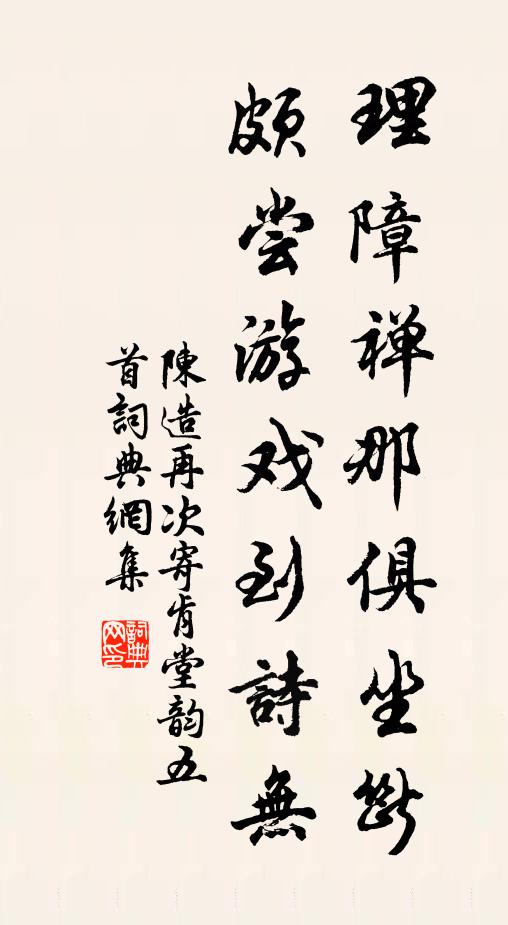 理障禅那俱坐断
頗尝游戏到詩無
陳造再次寄肯堂韵五
首詞典網集
詞典
网印